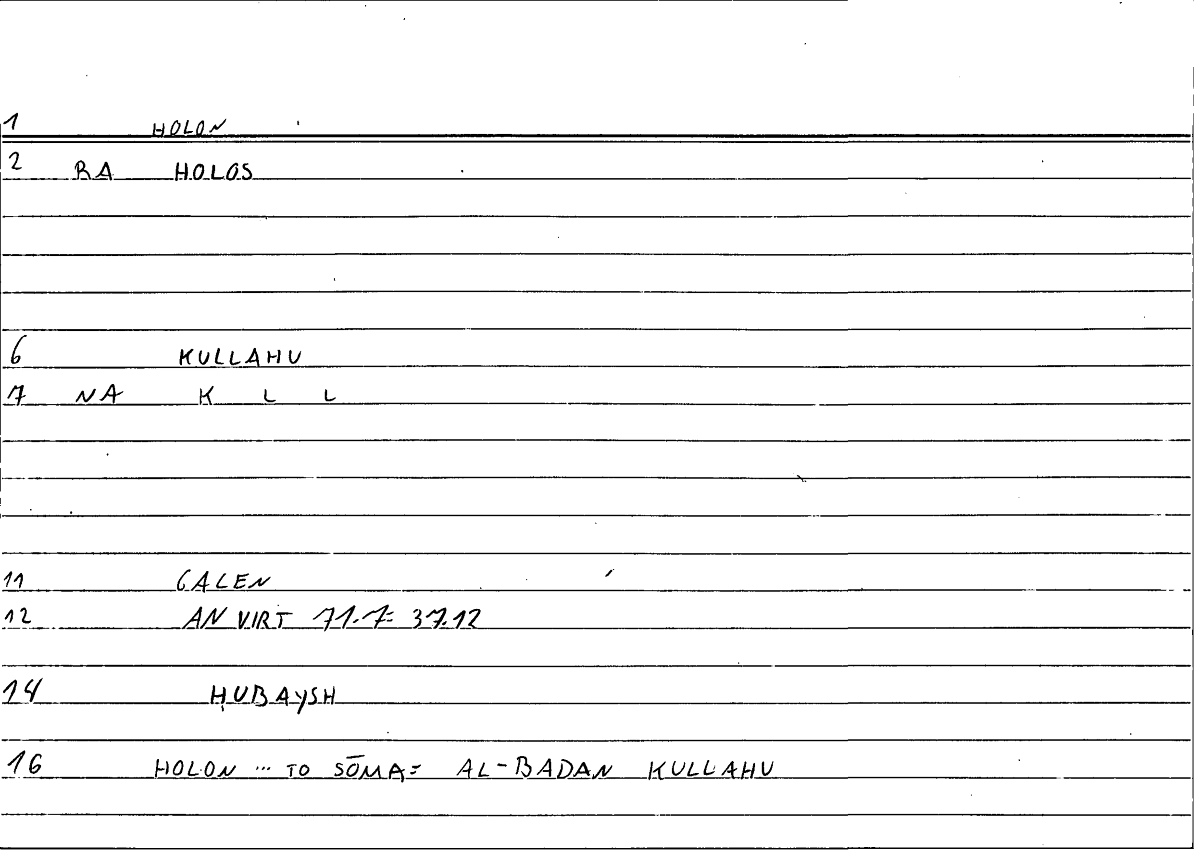 1 HOLON
2 RA HOLOS
6 KULLAHU
7 NA K L L
11 GALEN
12 AN VIRT 71.7= 37.12
14 ḤUBAYSH
16 HOLON ... TO SŌMA= AL-BADAN KULLAHU